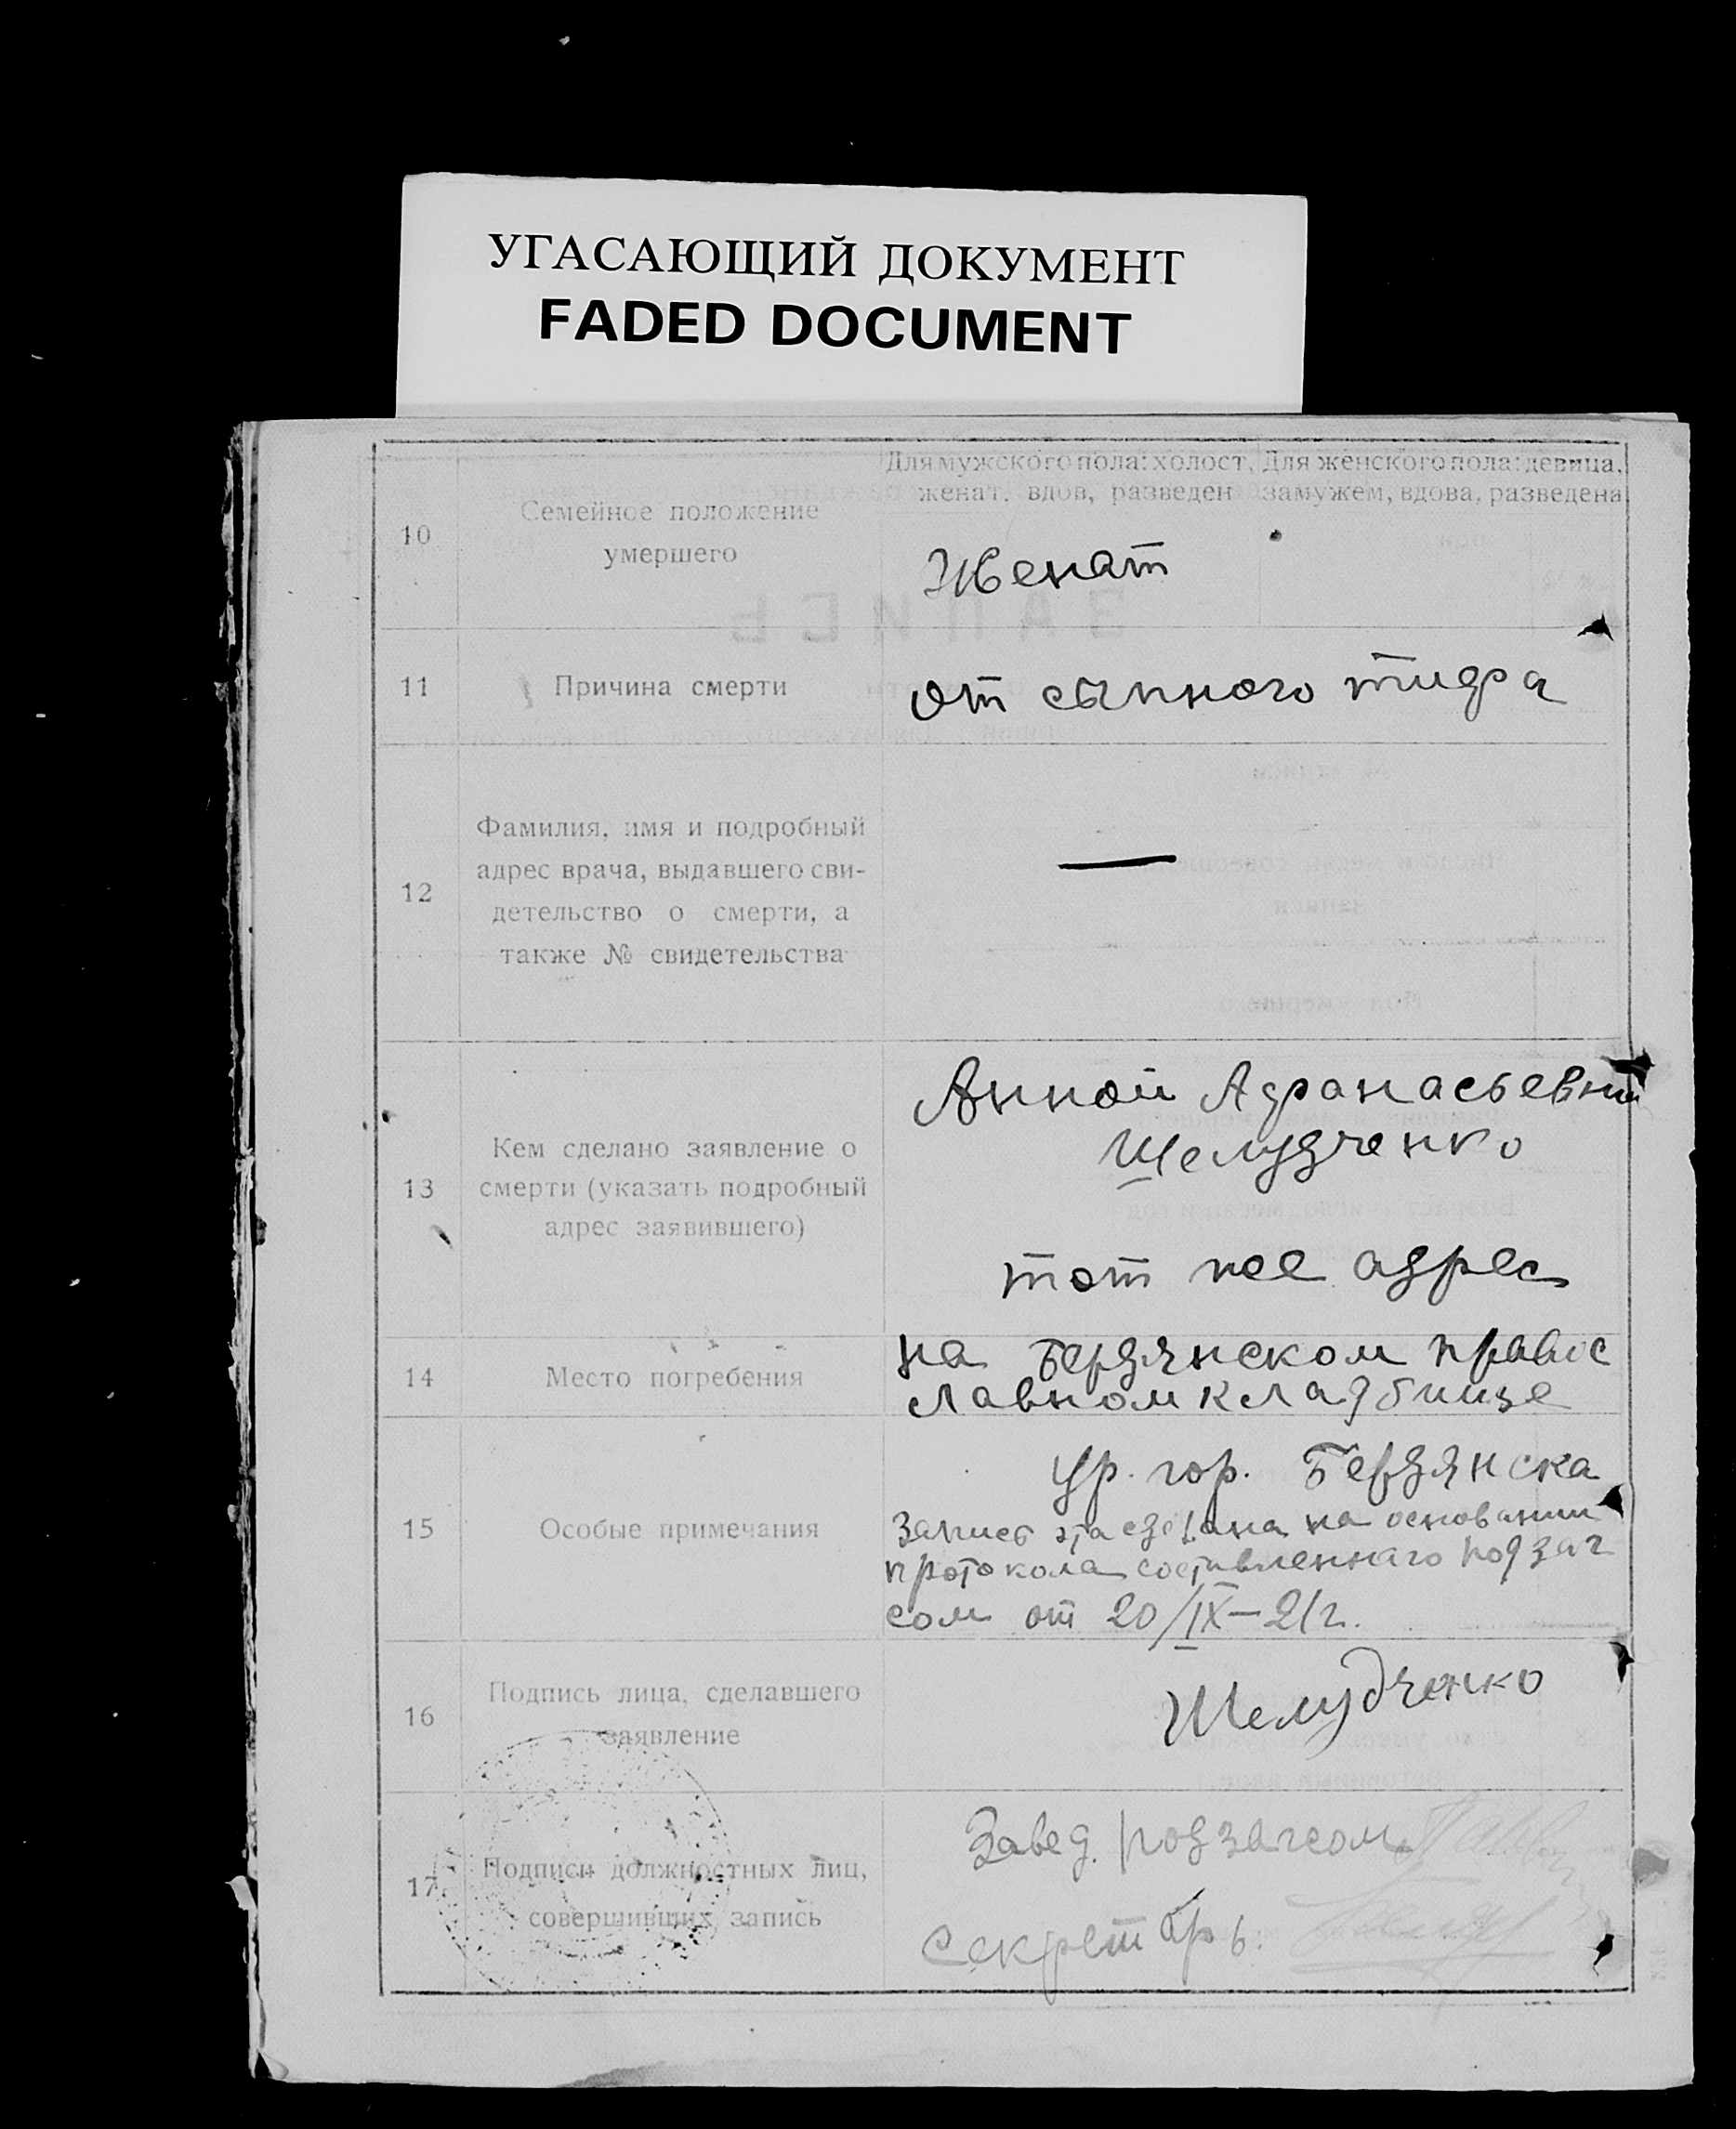 УГАСАЮЩИЙ ДОКУМЕНТ
FADED DOCUMENT
10
Семейное положение
умершего
Для мужского пола: холост,
женат, вдов, разведен
Для женского пола: девица,
замужем, вдова, разведена
Женат
ЗАПИСЬ
11
Причина смерти
от сыпного тифа
12
Фамилия, имя и подробный
адрес врача, выдавшего сви-
детельство о смерти, а
также № свидетельства
—
13
Кем сделано заявление о
смерти (указать подробный
адрес заявившего)
Анной Афанасьевной
Шелудченко
тот же адрес
14
Место погребения
на Бердянском правос
лавном кладбище
15
Особые примечания
гр. гор. Бердянска
Запись эта сделана на основании
протокола составленнаго подзаг
сом от 20/IX–21г.
16
Подпись лица, сделавшего
заявление
Шелудченко
17
Подписи должностных лиц,
совершивших запись
Завед. подзагсом
Секретарь